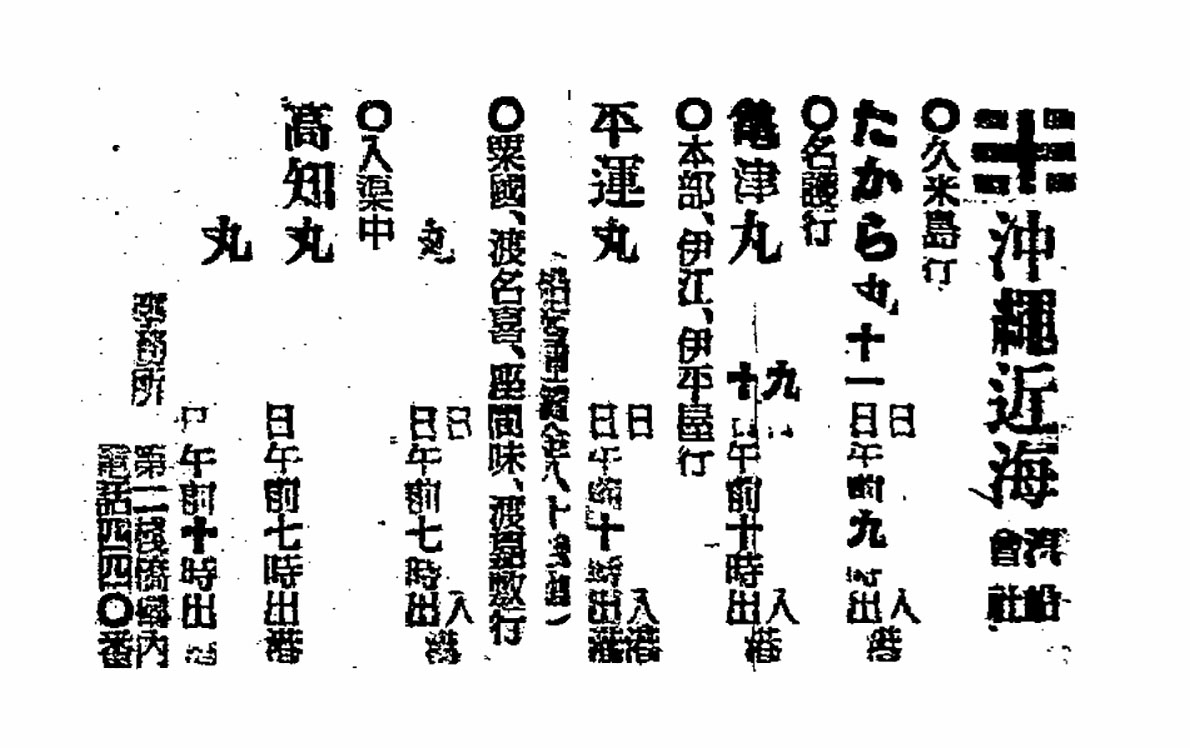 沖繩近海汽船會社
〇久米島行
たから丸 十一日午前九時出
日 入港
〇名護行
亀津丸 十日午前十時出
九日 入港
〇本部、伊江、伊平屋行
平運丸 日午前十時出港
日 入港
〇粟國、渡名喜、座間味、渡嘉敷行
丸 日午前七時出
日 入港
〇入渠中
高知丸 日午前七時出港
丸 日午前十時出港
事務所 第二棧橋構内
電話四四〇番